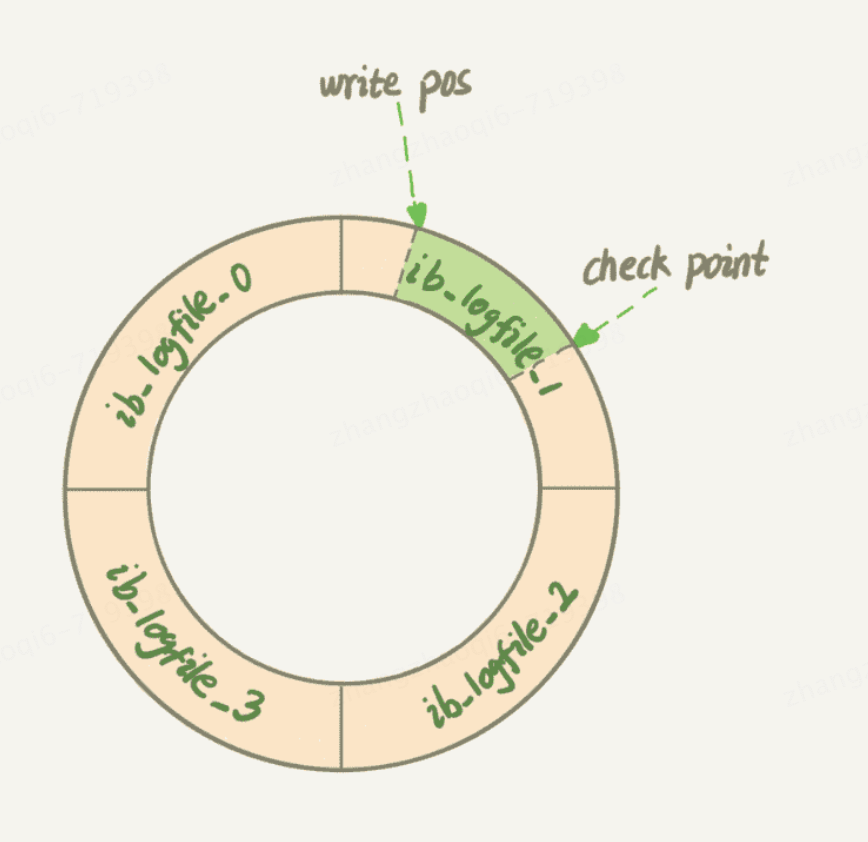 write pos
check point
ib_logfile_0
ib_logfile_1
ib_logfile_3
ib_logfile_2
zhangzhaoqi6-719398